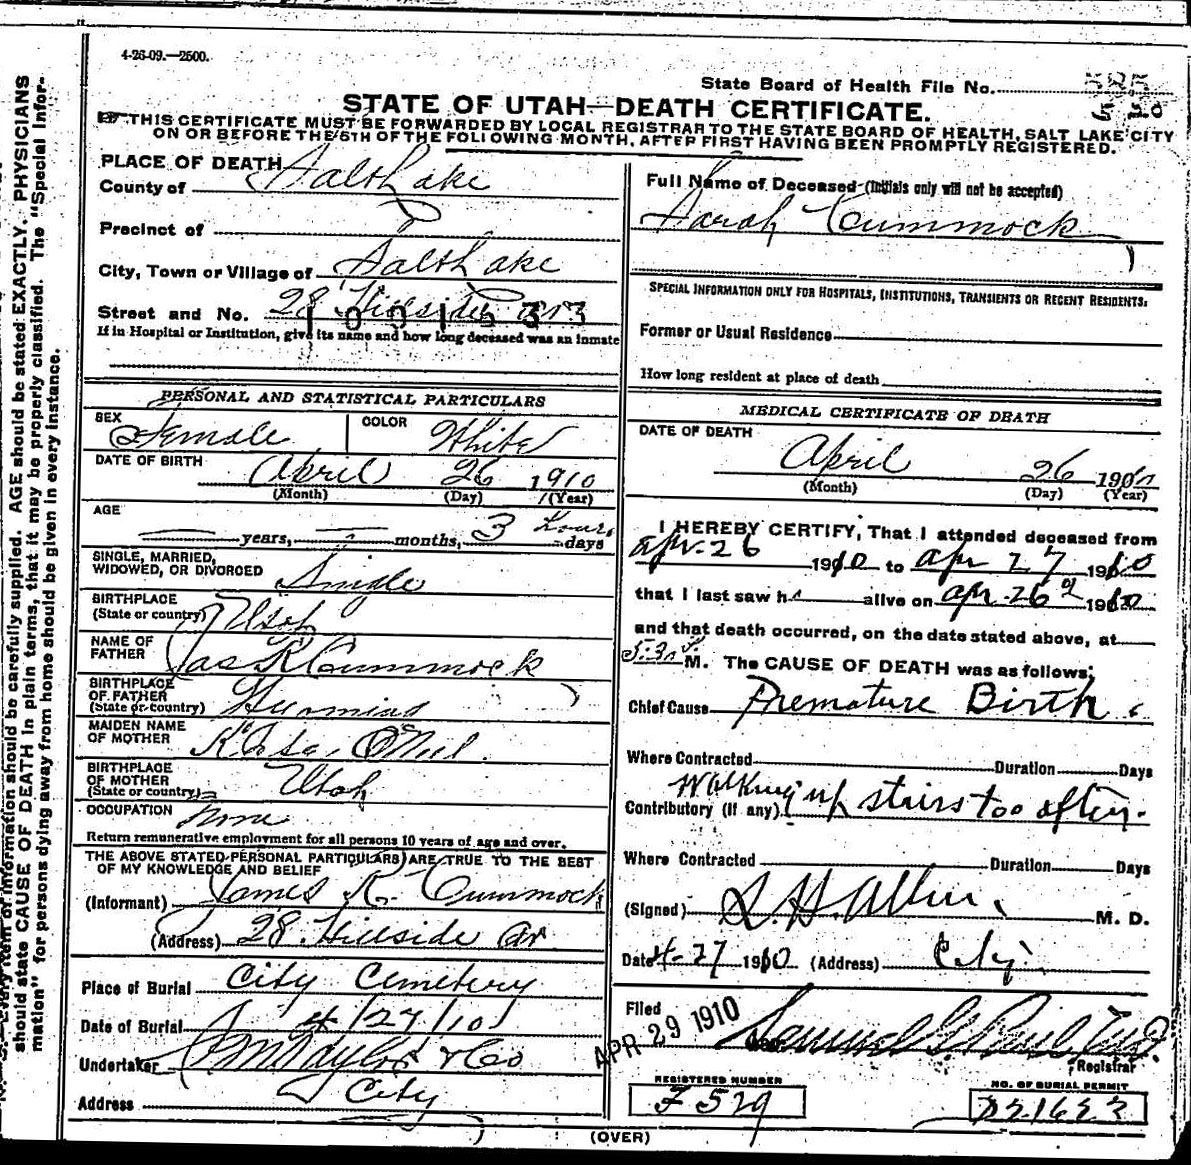 4-26-09.—2500.
State Board of Health File No. 585
530
STATE OF UTAH—DEATH CERTIFICATE.
THIS CERTIFICATE MUST BE FORWARDED BY LOCAL REGISTRAR TO THE STATE BOARD OF HEALTH, SALT LAKE CITY
ON OR BEFORE THE 5TH OF THE FOLLOWING MONTH, AFTER FIRST HAVING BEEN PROMPTLY REGISTERED.
PLACE OF DEATH
County of Salt Lake
Precinct of
City, Town or Village of Salt Lake
Street and No. 28 Hillside
If in Hospital or Institution, give its name and how long deceased was an inmate
Full Name of Deceased (Initials only will not be accepted)
Sarah Cummock
SPECIAL INFORMATION ONLY FOR HOSPITALS, INSTITUTIONS, TRANSIENTS OR RECENT RESIDENTS:
Former or Usual Residence
How long resident at place of death
PERSONAL AND STATISTICAL PARTICULARS
SEX Female COLOR White
DATE OF BIRTH April 26 1910
(Month) (Day) (Year)
AGE
— years, — months, 3 hours days
SINGLE, MARRIED,
WIDOWED, OR DIVORCED Single
BIRTHPLACE
(State or country) Utah
NAME OF
FATHER Jas R Cummock
BIRTHPLACE
OF FATHER
(State or country)
MAIDEN NAME
OF MOTHER O'Neil
BIRTHPLACE
OF MOTHER
(State or country) Utah
OCCUPATION None
Return remunerative employment for all persons 10 years of age and over.
THE ABOVE STATED PERSONAL PARTICULARS ARE TRUE TO THE BEST
OF MY KNOWLEDGE AND BELIEF
(Informant) James R. Cummock
(Address) 28 Hillside Av
Place of Burial City Cemetery
Date of Burial 4/27/10
Undertaker Taylor & Co
Address City
MEDICAL CERTIFICATE OF DEATH
DATE OF DEATH
April 26 1910
(Month) (Day) (Year)
I HEREBY CERTIFY, That I attended deceased from
Apr. 26 1910 to Apr 27 1910
that I last saw h alive on Apr. 26 1910
and that death occurred, on the date stated above, at
5:30 P. M. The CAUSE OF DEATH was as follows:
Chief Cause Premature Birth.
Where Contracted Duration Days
Contributory (if any) Walking up stairs too often.
Where Contracted Duration Days
(Signed) S. H. Allen. M. D.
Date 4-27 1910 (Address) City
Filed
APR 29 1910
Registrar
REGISTERED NUMBER
F 529
NO. OF BURIAL PERMIT
(OVER)
should be carefully supplied. AGE should be stated EXACTLY. PHYSICIANS
should state CAUSE OF DEATH in plain terms, that it may be properly classified. The "Special Infor-
mation" for persons dying away from home should be given in every instance.